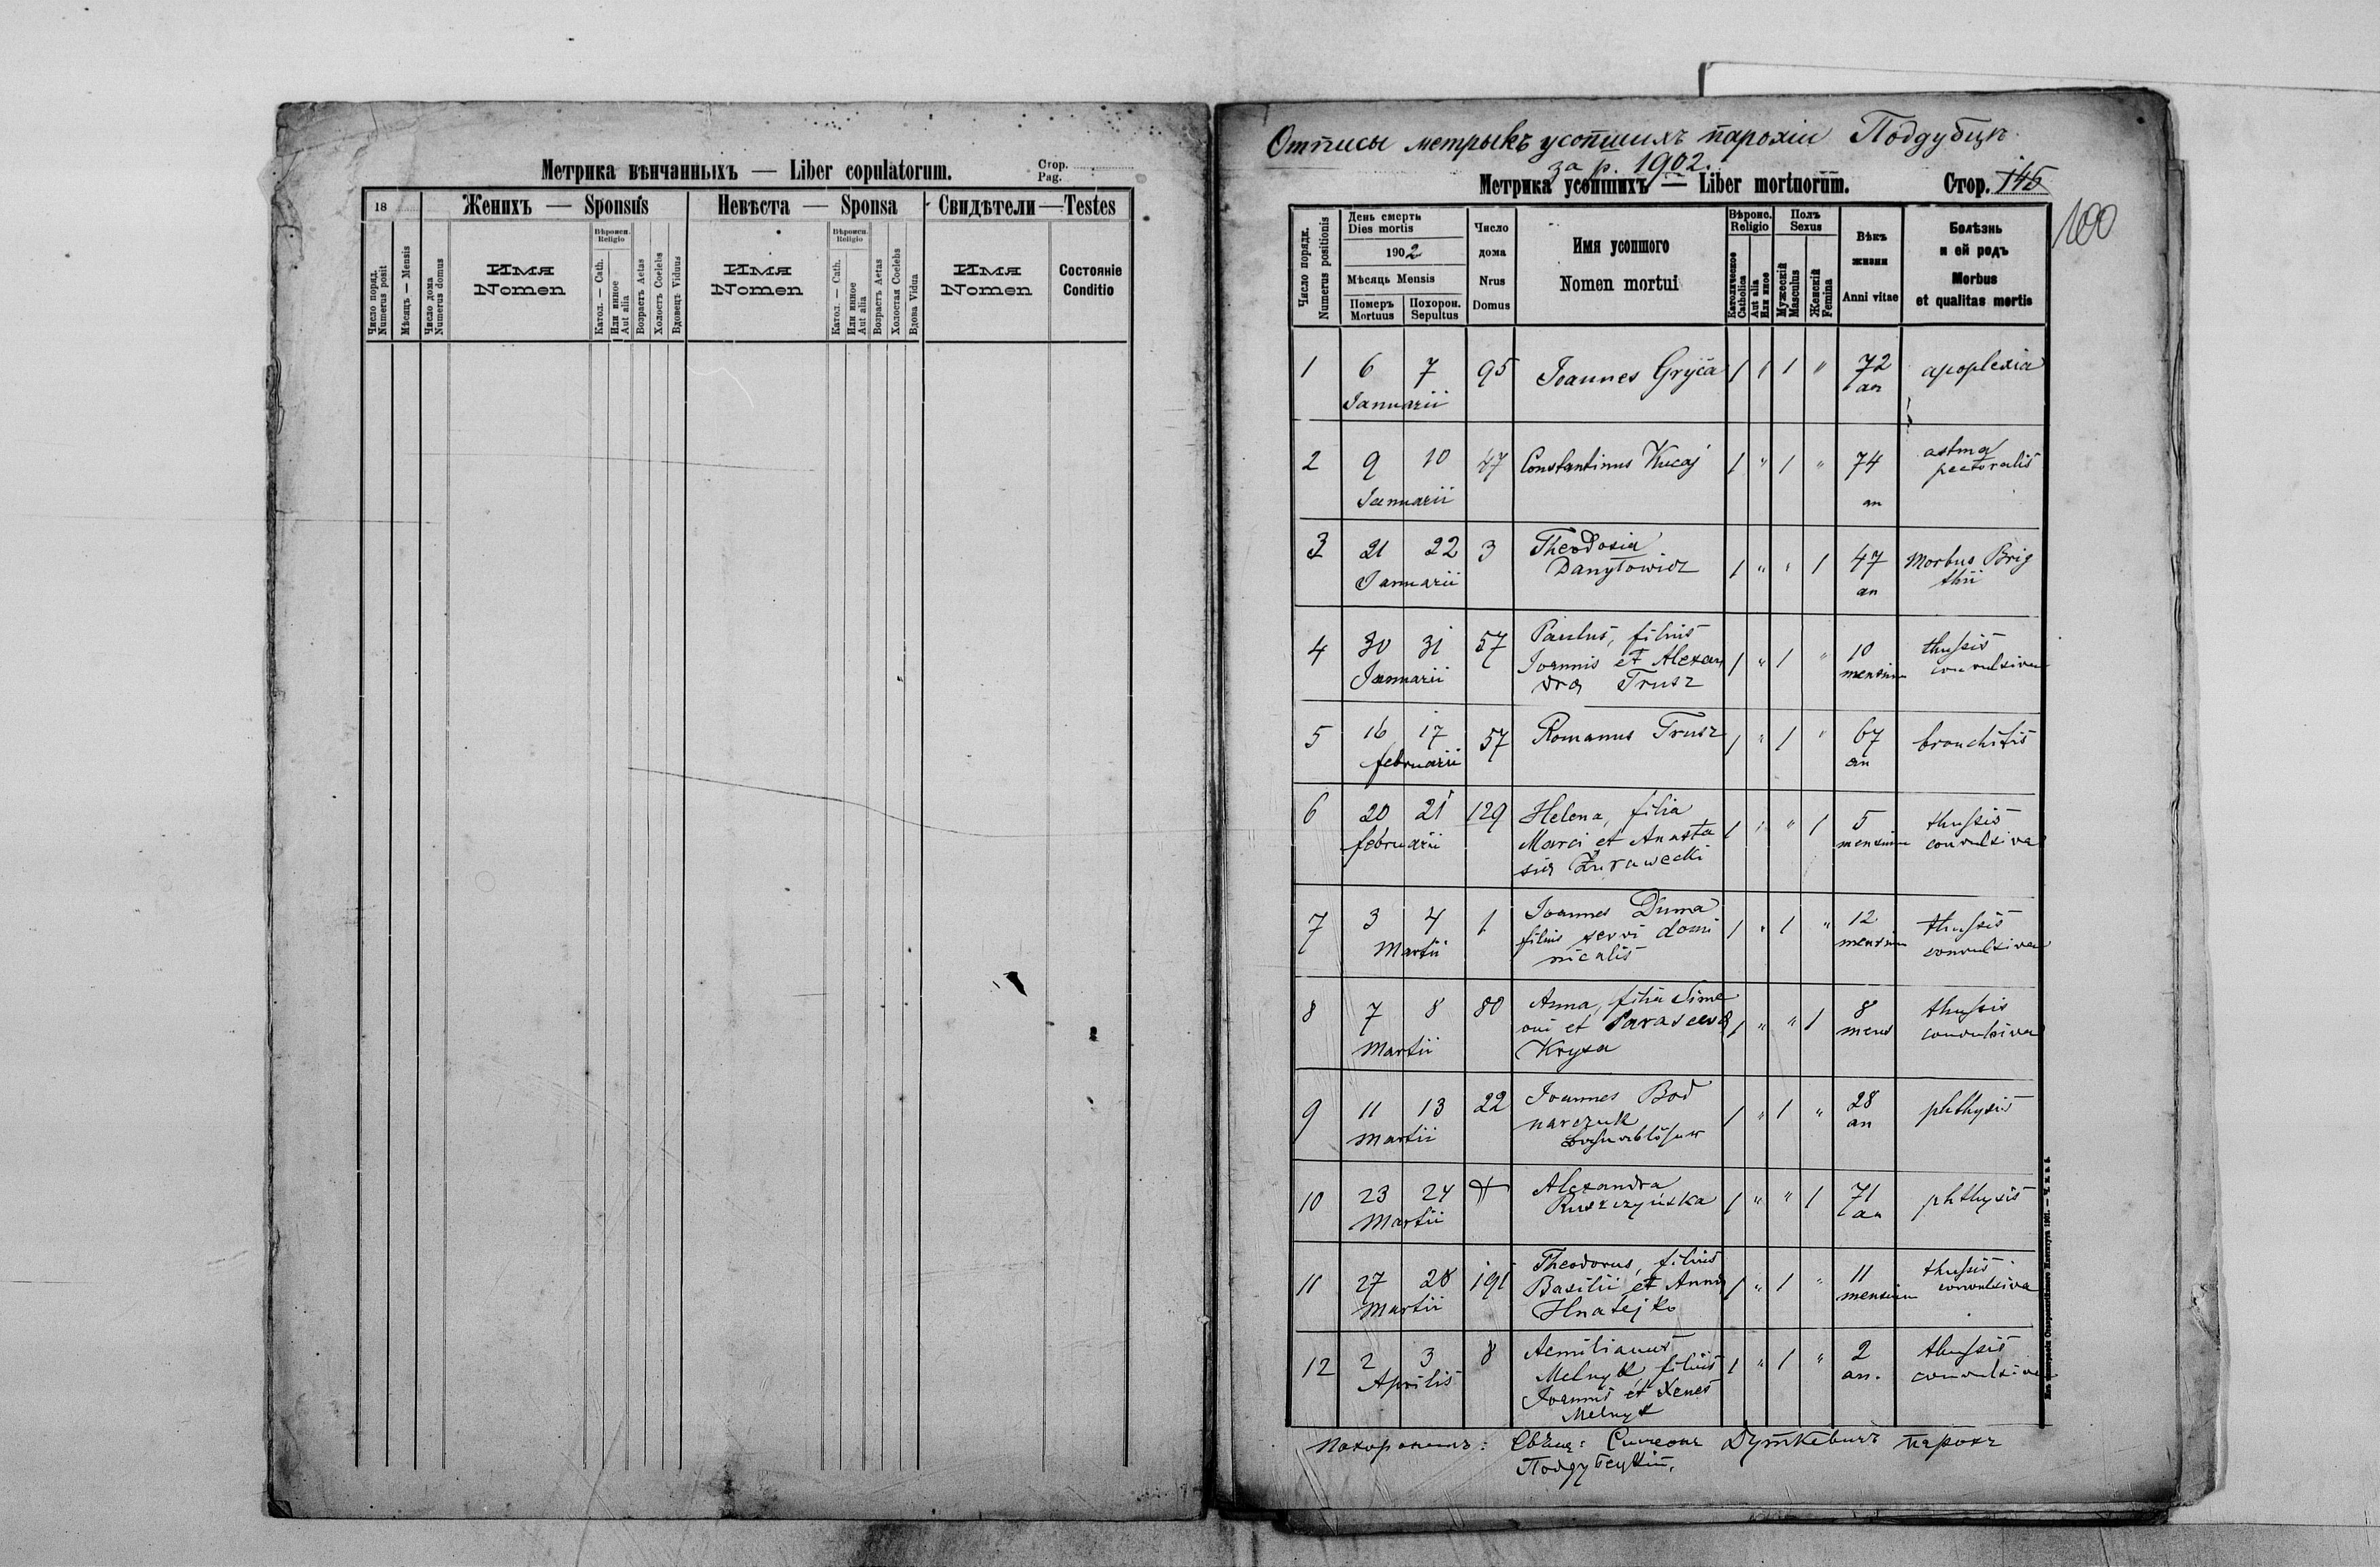 Метрика вѣнчанныхъ — Liber copulatorum.
Стор.
Pag.
18
Женихъ — Sponsus
Невѣста — Sponsa
Свидѣтели — Testes
Число поряд.
Numerus posit
Мѣсяцъ — Mensis
Число дома
Numerus domus
Имя
Nomen
Вѣроисп.
Religio
Катол. — Cath.
Или иное
Aut alia
Возрастъ Aetas
Холостъ Coelebs
Вдовецъ Viduus
Имя
Nomen
Вѣроисп.
Religio
Катол. — Cath.
Или иное
Aut alia
Возрастъ Aetas
Холостая Coelebs
Вдова Vidua
Имя
Nomen
Состояніе
Conditio
Отписы метрыкъ усопшихъ парохіи Подубцѣ
за р. 1902.
Метрика усопшихъ — Liber mortuorum.
Стор. 145
100
Число порядк.
Numerus positionis
День смерть
Dies mortis
1902
Мѣсяць Mensis
Померъ
Mortuus
Похорон.
Sepultus
Число
дома
Nrus
Domus
Имя усопшого
Nomen mortui
Вѣроис.
Religio
Католическое
Catholica
Aut alia
Или иное
Полъ
Sexus
Мужескій
Masculus
Женскій
Femina
Вѣкъ
жизни
Anni vitae
Болѣзнь
и ей родъ
Morbus
et qualitas mortis
1 6 7 95 Joannes Gryca 1 1 1 " 72 apoplexia
Januarii an
2 9 10 47 Constantinus Kucaj 1 " 1 " 74 astma
pectoralis
Januarii an
3 21 22 3 Theodosia
Danyłowicz 1 " " 1 47 Morbus Brig
Januarii an thii
4 30 31 57 Paulus, filius
Joannis et Alexan 1 " 1 " 10 thussis
Januarii dra Trusz mensium convulsiva
5 16 17 57 Romanus Trusz 1 " 1 " 67 bronchitis
februarii an
6 20 21 129 Helena, filia
februarii Marci et Anasta 1 " " 1 5 thussis
sia Żurawecki mensium convulsiva
7 3 4 1 Joannes Duma
Martii filius servi domi 1 " 1 " 12 thussis
nicalis mensium convulsiva
8 7 8 80 Anna, filia Sime
oni et Parasceva 1 " " 1 8 thussis
Martii Krysa mens convulsiva
9 11 13 22 Joannes Bod
Martii narczuk 1 " 1 " 28 phthysis
an
10 23 24 Alexandra
Martii Ruszczyńska 1 " " 1 71 phthysis
an
11 27 28 191 Theodorus, filius
Martii Basilii et Anna 1 " 1 " 11 thussis
Hnatejko mensium convulsiva
12 2 3 8 Aemilianus
Aprilis Melnyk, filius 1 " 1 " 2 thussis
Joannis et Xenes an. convulsiva
Melnyk
Похоронилъ: Свѣщ: Симеонъ Дуткевичъ парохъ
Подубецкій.